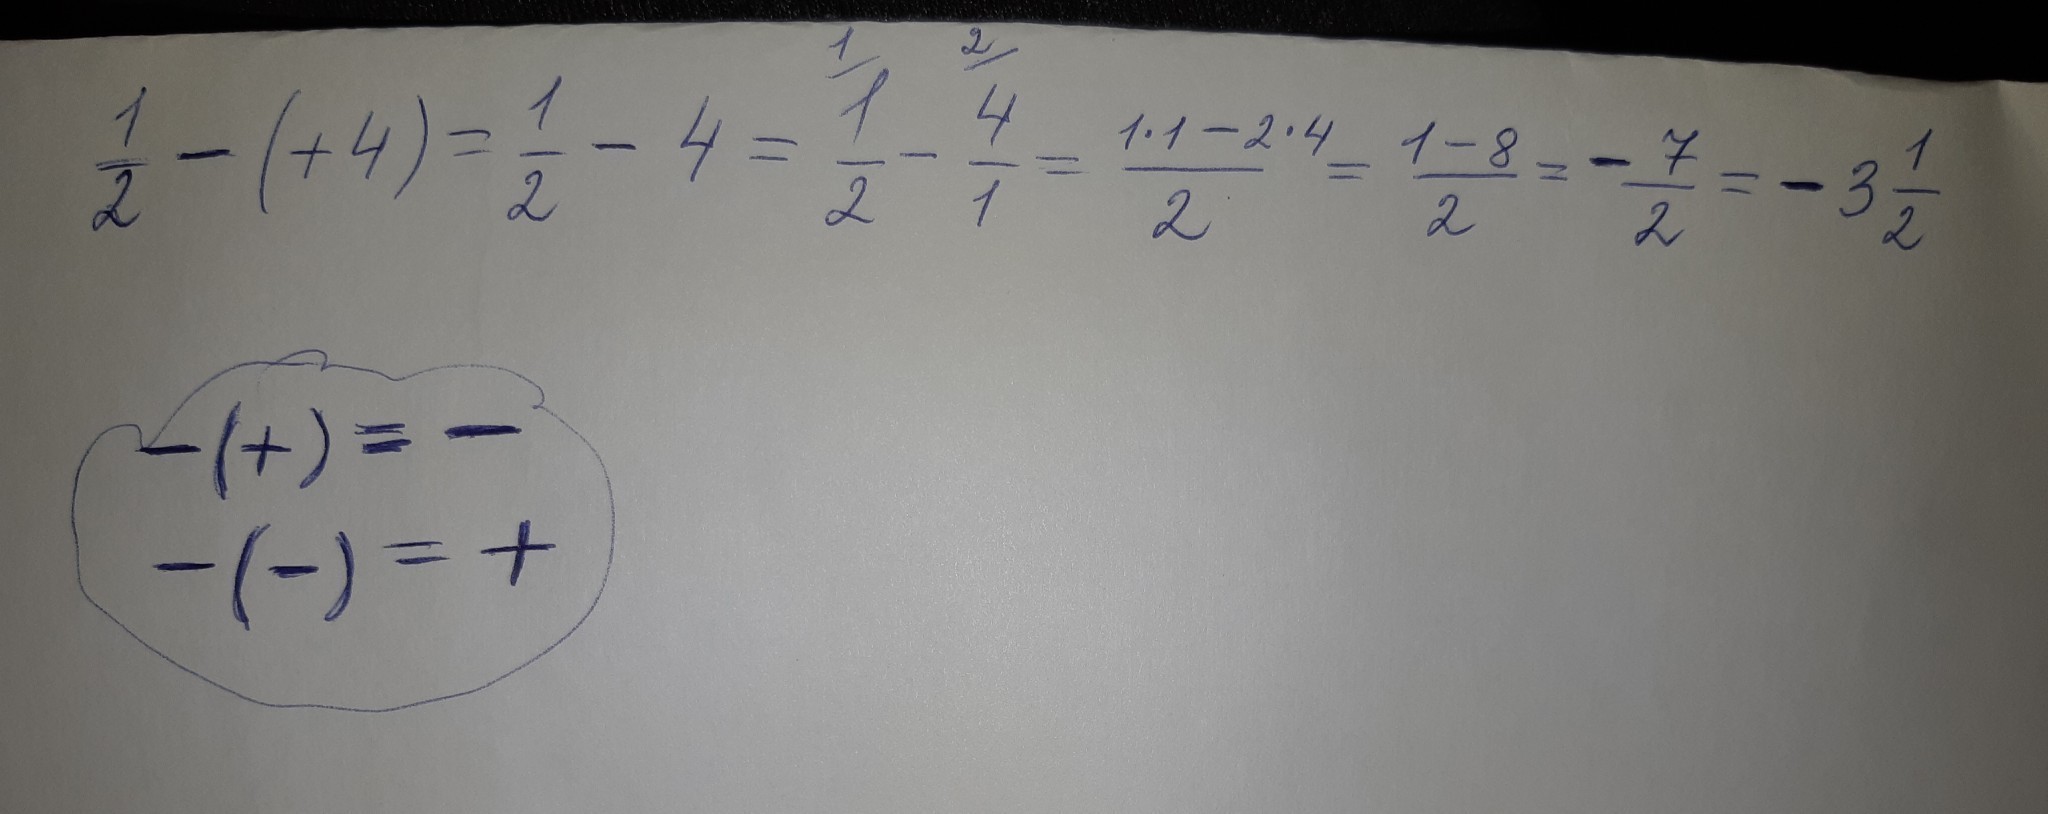 1/2 - (+4) = 1/2 - 4 = 1/ 1/2 - 2/ 4/1 = (1·1 - 2·4)/2 = (1-8)/2 = - 7/2 = - 3 1/2
-(+) = -
-(-) = +